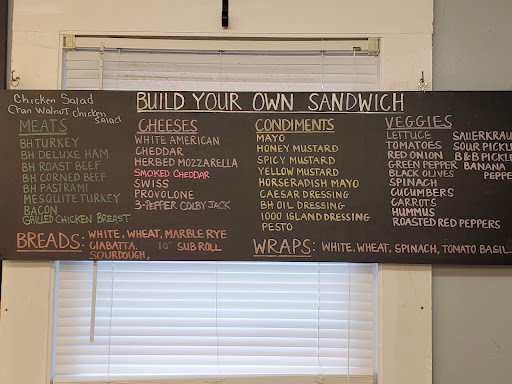 Chicken Salad
Cran Walnut chicken salad
BUILD YOUR OWN SANDWICH
MEATS
BH TURKEY
BH DELUXE HAM
BH ROAST BEEF
BH CORNED BEEF
BH PASTRAMI
MESQUITE TURKEY
BACON
GRILLED CHICKEN BREAST
CHEESES
WHITE AMERICAN
CHEDDAR
HERBED MOZZARELLA
SMOKED CHEDDAR
SWISS
PROVOLONE
3-PEPPER COLBY JACK
CONDIMENTS
MAYO
HONEY MUSTARD
SPICY MUSTARD
YELLOW MUSTARD
HORSERADISH MAYO
CAESAR DRESSING
BH OIL DRESSING
1000 ISLAND DRESSING
PESTO
VEGGIES
LETTUCE
TOMATOES
RED ONION
GREEN PEPPER
BLACK OLIVES
SPINACH
CUCUMBERS
CARROTS
HUMMUS
ROASTED RED PEPPERS
SAUERKRAU
SOUR PICKL
B&B PICKL
BANANA
PEPPE
BREADS: WHITE, WHEAT, MARBLE RYE
CIABATTA, 10" SUB ROLL
SOURDOUGH,
WRAPS: WHITE, WHEAT, SPINACH, TOMATO BASIL